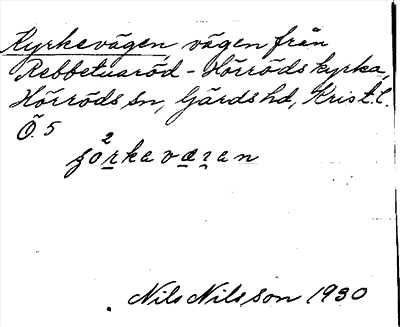 Kyrkevägen vägen från
Rebbetuaröd - Hörröds kyrka,
Hörröds sn, Gärds hd, Krist. l.
Ö. 5
Nils Nilsson 1930